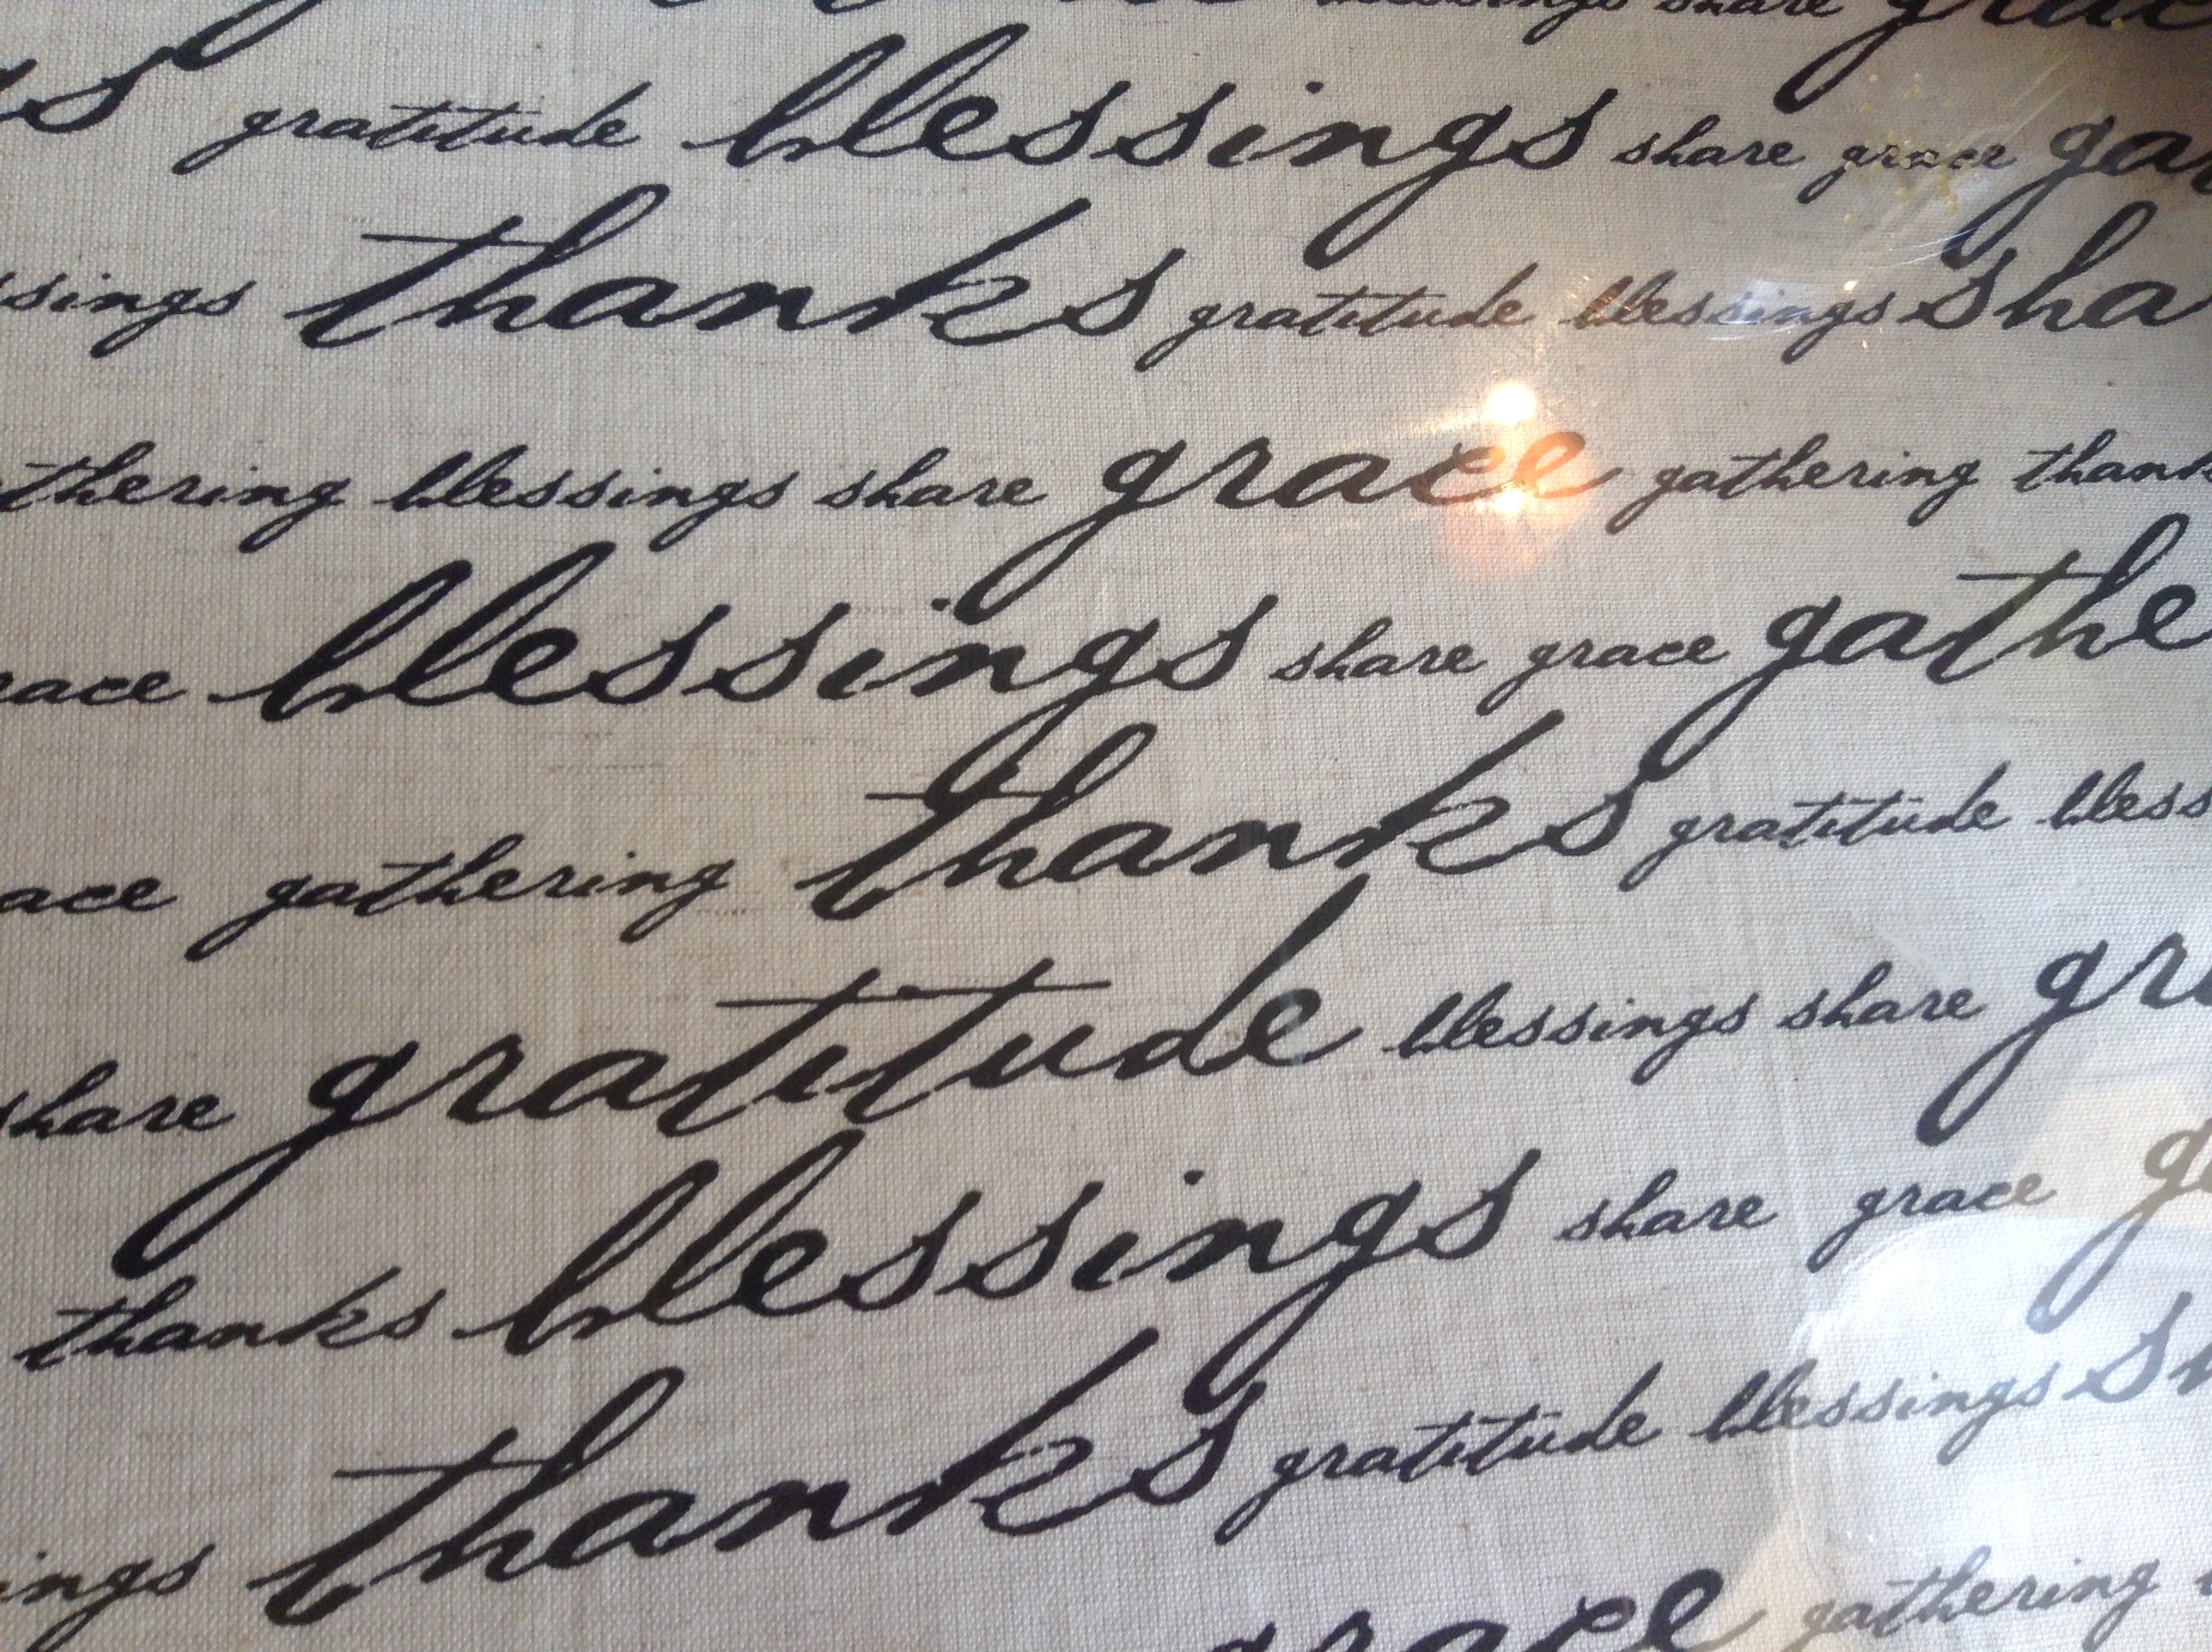 blessings share grac
gs gratitude blessings share grace ga
ssings thanks gratitude blessings sha
thering blessings share grace gathering thank
race blessings share grace gathe
ace gathering thanks gratitude bless
share gratitude blessings share gr
thanks blessings share grace g
ings thanks gratitude blessings s
grace gathering